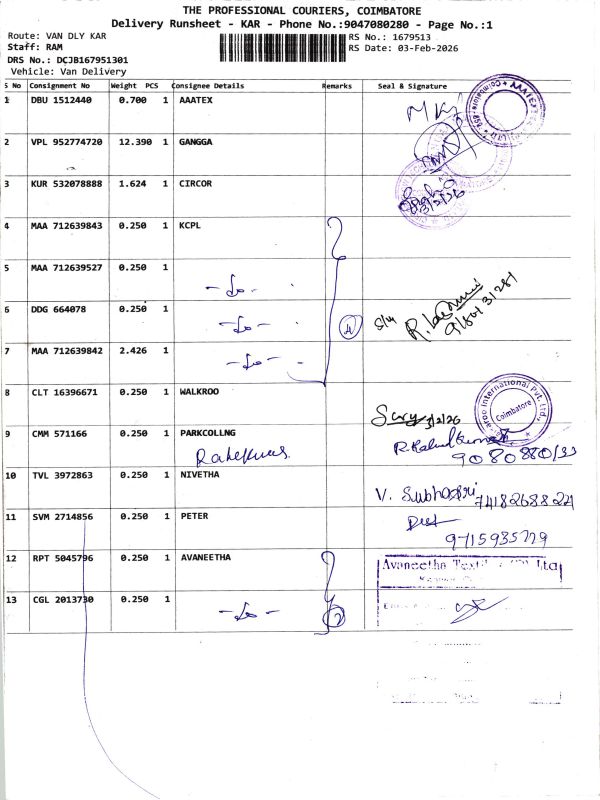 THE PROFESSIONAL COURIERS, COIMBATORE
Delivery Runsheet - KAR - Phone No.:9047080280 - Page No.:1
Route: VAN DLY KAR
RS No.: 1679513
Staff: RAM
RS Date: 03-Feb-2026
DRS No.: DCJB167951301
Vehicle: Van Delivery
S No Consignment No Weight PCS Consignee Details Remarks Seal & Signature
1 DBU 1512440 0.700 1 AAATEX
2 VPL 952774720 12.390 1 GANGGA
3 KUR 532078888 1.624 1 CIRCOR
3/2/26
4 MAA 712639843 0.250 1 KCPL
5 MAA 712639527 0.250 1
-do-
6 DDG 664078 0.250 1
-do- 4
7 MAA 712639842 2.426 1
-do-
8 CLT 16396671 0.250 1 WALKROO
3/2/26
Coimbatore
9 CMM 571166 0.250 1 PARKCOLLNG
10 TVL 3972863 0.250 1 NIVETHA
V. Subhasri 7418268824
11 SVM 2714856 0.250 1 PETER
9715935779
12 RPT 5045796 0.250 1 AVANEETHA
Avaneetha Ltd
13 CGL 2013730 0.250 1
-do- 2